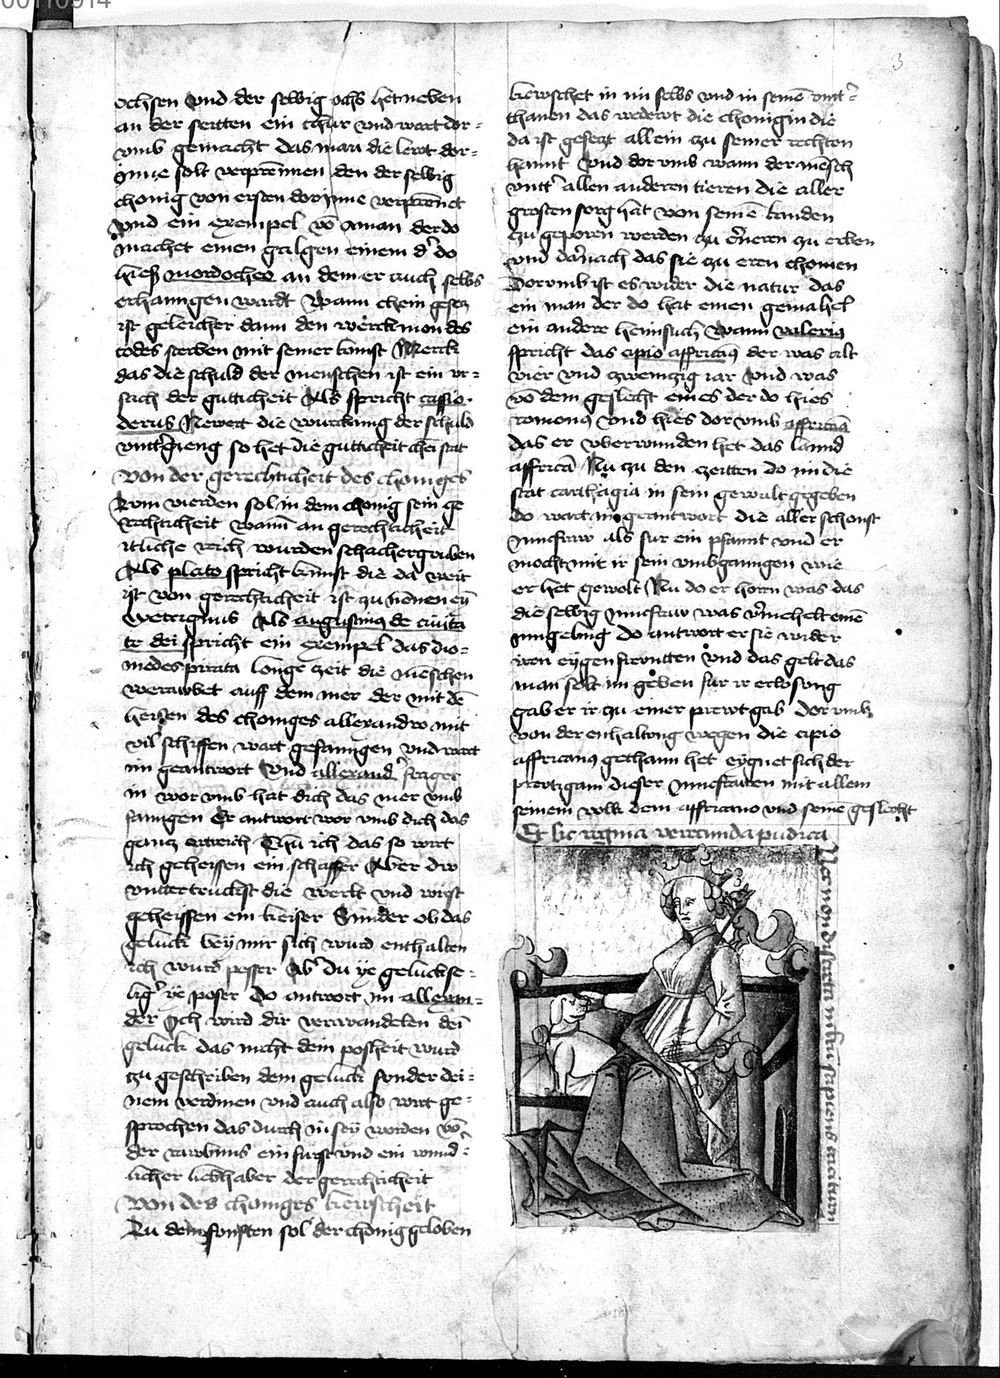 00110914
3
ochsen vnd der selbig ochs het neben
an der seitten ein thur vnd wart dor-
vmb gemacht das man die lewt dor-
Inne solt verprennen den der selbig
chonig von ersten dor Inne verprennet
vnd ein exempel võ aman der do
machet einen galgen einem d' do
hieß mordocheo an dem er auch selbs
erhanngen wardt Wann chein gesecz
ist geleicher dann den werckman des
todes sterben mit seiner kunst Merck
das die schuld der menschen ist ein vr-
sach der gutticheit Als spricht cassio-
derus Newert die wurckung der schuld
vntt'gieng so het die gutticheit chei stat
von der gerechticheit des choniges
Zum vierden sol in dem chonig sein ge
rechticheit Wann an gerechticheit
itliche reich wurden schachergruben
Als plato spricht kunst die da weit
ist von gerechticheit ist zu nennen ein
vetrignus Als augustinus de ciuita
te dei spricht ein exempel das dio-
medes pirata lange zeit die menschen
verawbet auff dem mer der mit de
heissen des choniges allexandro mit
vil schiffen wart gefanngen vnd wart
im geantwort Vnd allexand' fraget
in wor vmb hat dich das mer vmb
fanngen Er antwort wor vmb dich das
gancz ertreich Thu ich das so wirt
ich geheissen ein schaffer Aber dw
vntter truckst die werlt vnd wirst
geheyssen ein keiser Sunder ob das
geluck bey mir sich wurd enthalten
ich wurd pesser Ab' du ye gelucksse-
lig' ye poser Do antwort im allexan-
der Ich wird dir verwandelen dei
geluck das nicht dein posheit wurd
zu geschriben dem geluck sonder dei-
nem verdinen vnd auch also wirt ge-
sprochen das durch in sey worden võ
der rawbnus ein furst vnd ein wund'-
licher liebhaber der gerechticheit
Von des choniges kewscheit
Zu dem funften sol der chonig geloben
kewschet in im selbs vnd in seinẽ vntt'-
thanen das wedewt die chonigin die
da ist gesetzt allein zu seiner rechten
hannt Vnd dor vmb wann der mensch
vntt' allen anderen tieren die aller
grosten sorg hat von seinẽ kinden
zu geporen werden zu erneren zu erben
vnd darnach das sie zu eren chomen
Dorvmb ist es wider die natur das
ein man der do hat einen gemahel
ein andere heimsuch Wann valerius
spricht das cipio affricanus der was alt
vier vnd zweinczig iar Vnd was
võ dem geslecht eines der do hies
romonus Vnd hies dor vmb affricanus
das er vberwunden het das lannd
affrica Nu zu den czeitten do im die
stat carthagia in sein gewalt gegeben
Do wart im geantwort die aller schonst
iuncfraw als fur ein pfannt vnd er
mocht mit ir sein vmbganngen wie
er het gewolt Nu do er horen was das
die selbig iuncfraw was v'mehelt einẽ
iungeling do antwort er sie wider
iren eygen freuntten vnd das gelt das
man solt im geben fur ir erlosung
gab er ir zu einer prewtgab Dor vmb
von der enhaltung wegen die cipio
affricanus gethann het eygnet sich der
prewtigam dieser iuncfrawen mit allem
seinem volk dem affricano vnd seinẽ geslecht
Et sic regina verecunda pudica